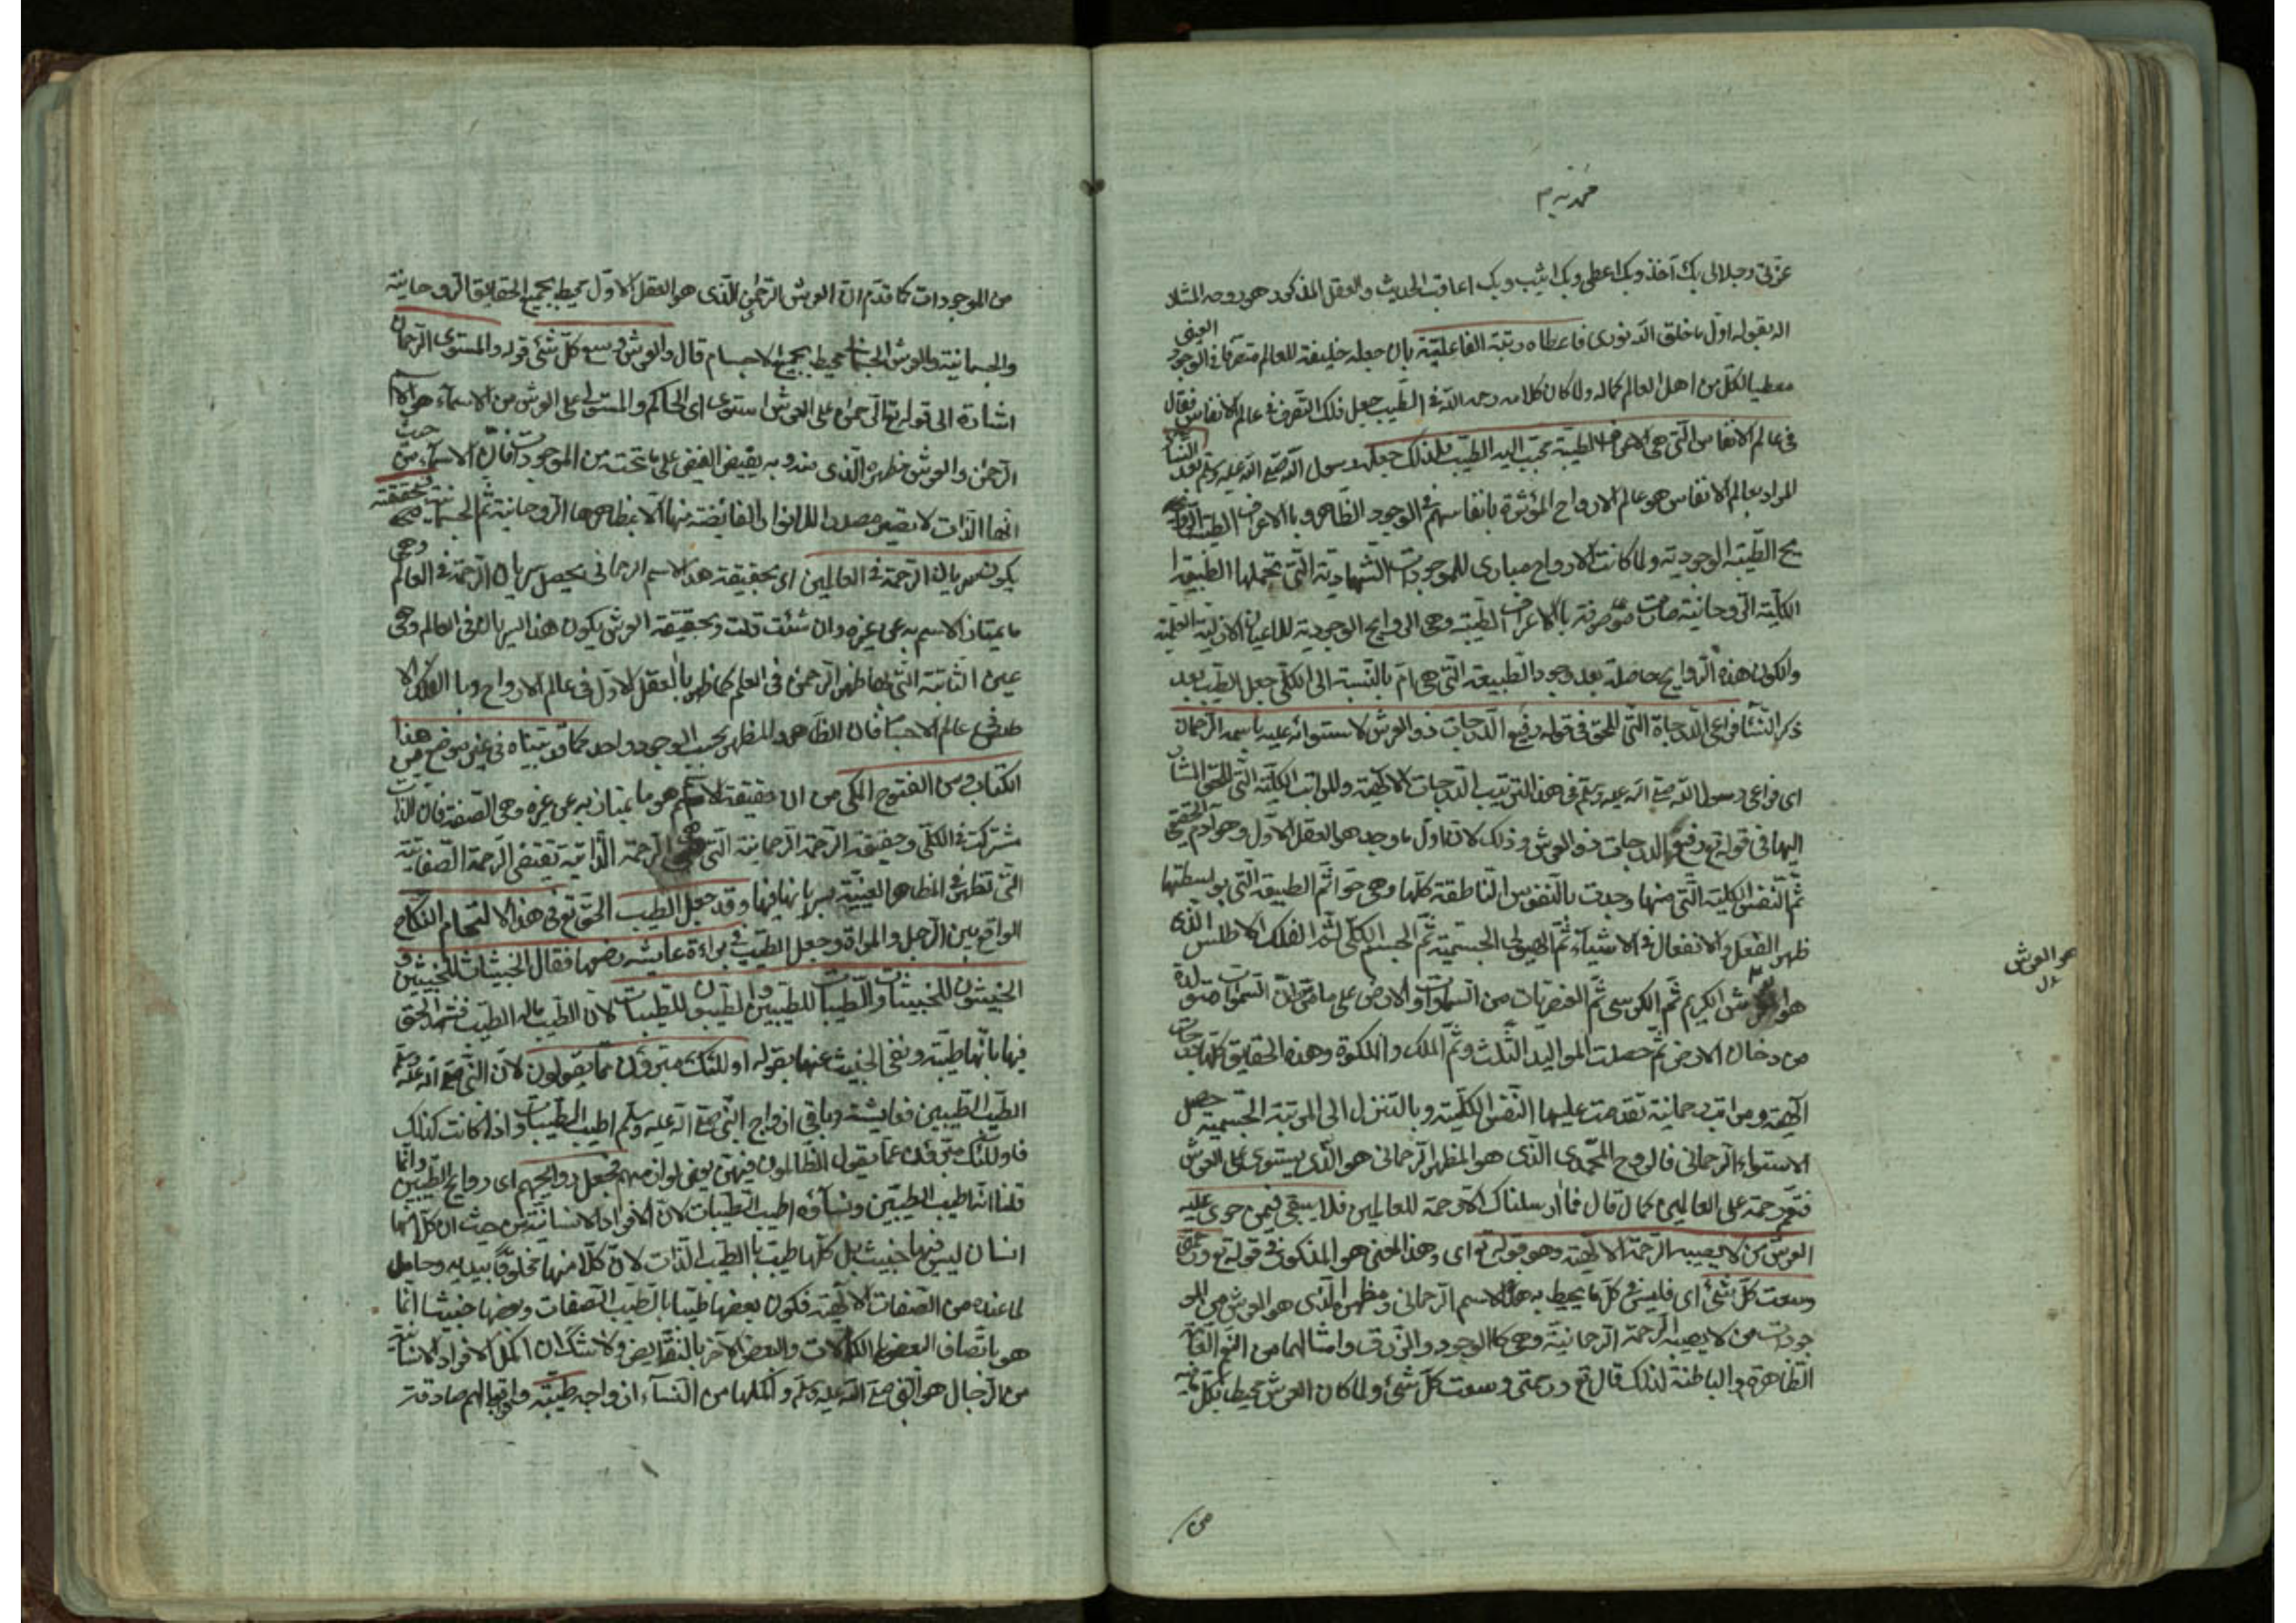 محمديه م
عزتى وجلالى بك آخذ وبك اعطى وبك اثيب وبك اعاقب الحديث والعقل المذكور هو روحه المشار
اليه بقوله اول ما خلق الله نورى فاعطاه رتبة الفاعلية بان جعله خليفة للعالم متصرفا فى الوجود العينى
معطيا لكل من اهل العالم كماله ولما كان كلامه رحمه الله فى الطيب جعل ذلك التصرف فى عالم الانفاس فقال
فى عالم الانفاس التى هى الاعراف الطيبة فحبب اليه الطيب فلذلك جعله رسول الله صلع الله عليه وسلم بعد النساء
المراد بعالم الانفاس هو عالم الارواح المؤثرة بانفاسهم فى الوجود الظاهر وبالاعراف الطيبة الروا
يح الطيبة الوجودية ولما كانت الارواح مبادى للموجودات الشهادية التى تحملها الطبيعة
الكلية الروحانية صارت موصوفة بالاعراف الطيبة وهى الروايح الوجودية للاعيان الازلية العلمية
ولكون هذه الروايح حاصلة بعد وجود الطبيعة التى هى ام بالنسبة الى الكل جعل الطيب بعد
ذكر النسا فراعى الدرجاة التى للحق فى قوله رفيع الدرجات ذو العرش لاستوائه عليه باسمه الرحمان
اى فراعى رسول الله صلع الله عليه وسلم فى هذا الترتيب الدرجات الالهية والمراتب الكلية التى للحق المشار
اليها فى قوله تع رفيع الدرجات ذو العرش وذلك لان اول ما وجد هو العقل الاول وهو آدم الحقيقى
ثم النفس الكلية التى منها وجدت بالنفوس الناطقة كلها وهى حوا ثم الطبيعة التى بواسطتها
ظهر الفعل والانفعال فى الاشياء ثم الهيولى الجسمية ثم الجسم الكلى ثم الفلك الاطلس الذى
هو العرش الكريم ثم الكرسى ثم العنصريات من السموات والارض على ما مر ان السموات متولدة
هو العرش
من دخان الارض ثم حصلت المواليد الثلث وثم الملك والملكوة وهذه الحقايق كلها درجات
الهية ومراتب رحمانية تقدمت عليها النفس الكلية وبالتنزل الى المرتبة الجسمية حصل
الاستواء الرحمانى فالروح المحمدى الذى هو المظهر الرحمانى هو الذى يستوى على العرش
فتعم رحمته على العالمين كما قال فما ارسلناك الا رحمة للعالمين فلا يبقى فيمن حوى عليه
العرش من لا يصيبه الرحمة الالهية وهو قوله تع اى وهذا المعنى هو المذكور فى قوله تع ورحمتى
وسعت كل شئ اى فليس فى كل ما يحيط به هذا الاسم الرحمانى ومظهره الذى هو العرش من المو
جودات من لا يصيبه الرحمة الرحمانية وهى كالوجود والرزق وامثالهما من النعم العامة
الظاهرة والباطنة لذلك قال تع ورحمتى وسعت كل شئ ولما كان العرش محيطا بكل
من
من الموجودات كما تقدم ان العرش الرحمن الذى هو العقل الاول محيط بجميع الحقايق الروحانية
والجسمانية والعرش الجسمانى محيط بجميع الاجسام قال والعرش وسع كل شئ قوله والمستوى الرحمان
اشارة الى قوله تع الرحمن على العرش استوى اى الحاكم والمستولى على العرش من الاسماء هو الاسم
الرحمن والعرش مظهره الذى منه وبه يفيض الفيض على ما تحته من الموجودات فان الاسماء من حيث
انها الذات لا تصير مصدرا للانوار الفائضة منها الا بمظاهرها الروحانية ثم الجسمانية فبحقيقته
يكون سريان الرحمة فى العالمين اى بحقيقة هذا الاسم الرحمانى يحصل سريان الرحمة فى العالم وهى
ما يمتاز الاسم به عن غيره وان شئت قلت وبحقيقة العرش يكون هذا السريان فى العالم وهى
عينه الثابتة التى بها ظهر الرحمن فى العلم كما ظهر بالعقل الاول فى عالم الارواح وبالفلك الا
طلس فى عالم الاجسام فان الظاهر والمظهر بحسب الوجود واحد كما قد بيناه فى غير موضع من هذا
الكتاب ومن الفتوح المكى من ان حقيقة الاسم هو ما يمتاز به عن غيره وهى الصفة فان الذات
مشتركة فى الكل وحقيقة الرحمة الرحمانية التى هى الرحمة الذاتية تقتضى الرحمة الصفاتية
التى تظهر فى المظاهر العينية بسريانها فيها وقد جعل الطيب الحق تع فى هذا الالتحام النكاح
الواقع بين الرجل والمراة وجعل الطيب فى براءة عايشه رضها فقال الخبيثات للخبيثين و
الخبيثون للخبيثات والطيبات للطيبين والطيبون للطيبات لان الطيب ماله الطيب فشهد الحق
فيها بانها طيبة ونفى الخبيث عنها بقوله اولئك مبرؤن مما يقولون لان النبى صلع الله عليه وسلم
اطيب الطيبين فعايشة وباقى ازواج النبى صلع الله عليه وسلم اطيب الطيبات واذا كانت كذلك
فاولئك مبرؤن عما يقول الظالمون فيهن يعنى لوازمهم فجعل روايحهم اى روايح الطيبين وانما
قلنا انه اطيب الطيبين ونساؤه اطيب الطيبات لان الافراد الانسانية من حيث ان كلا منها
انسان ليس فيها خبيث بل كلها طيب بالطيب الذات لان كلا منها مخلوق بيديه وحامل
لما عنده من الصفات الالهية فكون بعضها طيبا بالطيب الصفات وبعضها خبيثا انما
هو باتصاف البعض بالكمالات والبعض الآخر بالنقايص ولا شك ان اكمل الافراد الانسانية
من الرجال هو النبى صلع الله عليه وسلم واكملها من النساء ازواجه طيبة واقوالهم صادقة